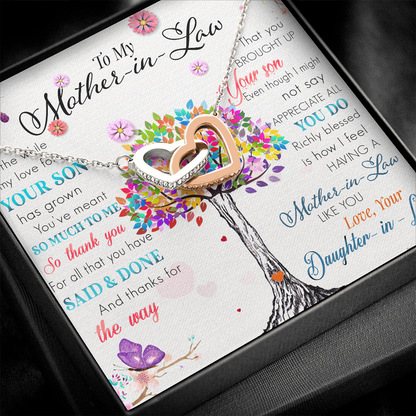 To My
Mother-in-Law
the while
my love
YOUR SON
has grown
You've meant
SO MUCH TO ME
So thank you
For all that you have
SAID & DONE
And thanks for
the way
That you
BROUGHT UP
Your son
Even though I might
not say
APPRECIATE ALL
YOU DO
Richly blessed
is how I feel
HAVING A
Mother-in-Law
LIKE YOU
Love, Your
Daughter-in-